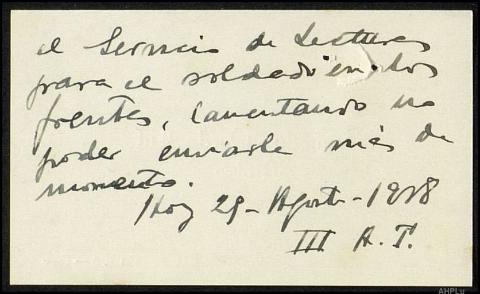 el Servicio de Lecturas
para el soldado en los
frentes, lamentando no
poder enviarle más de
momento.
Hoy 29 - Agosto - 1938
III A. T.
AHPLu